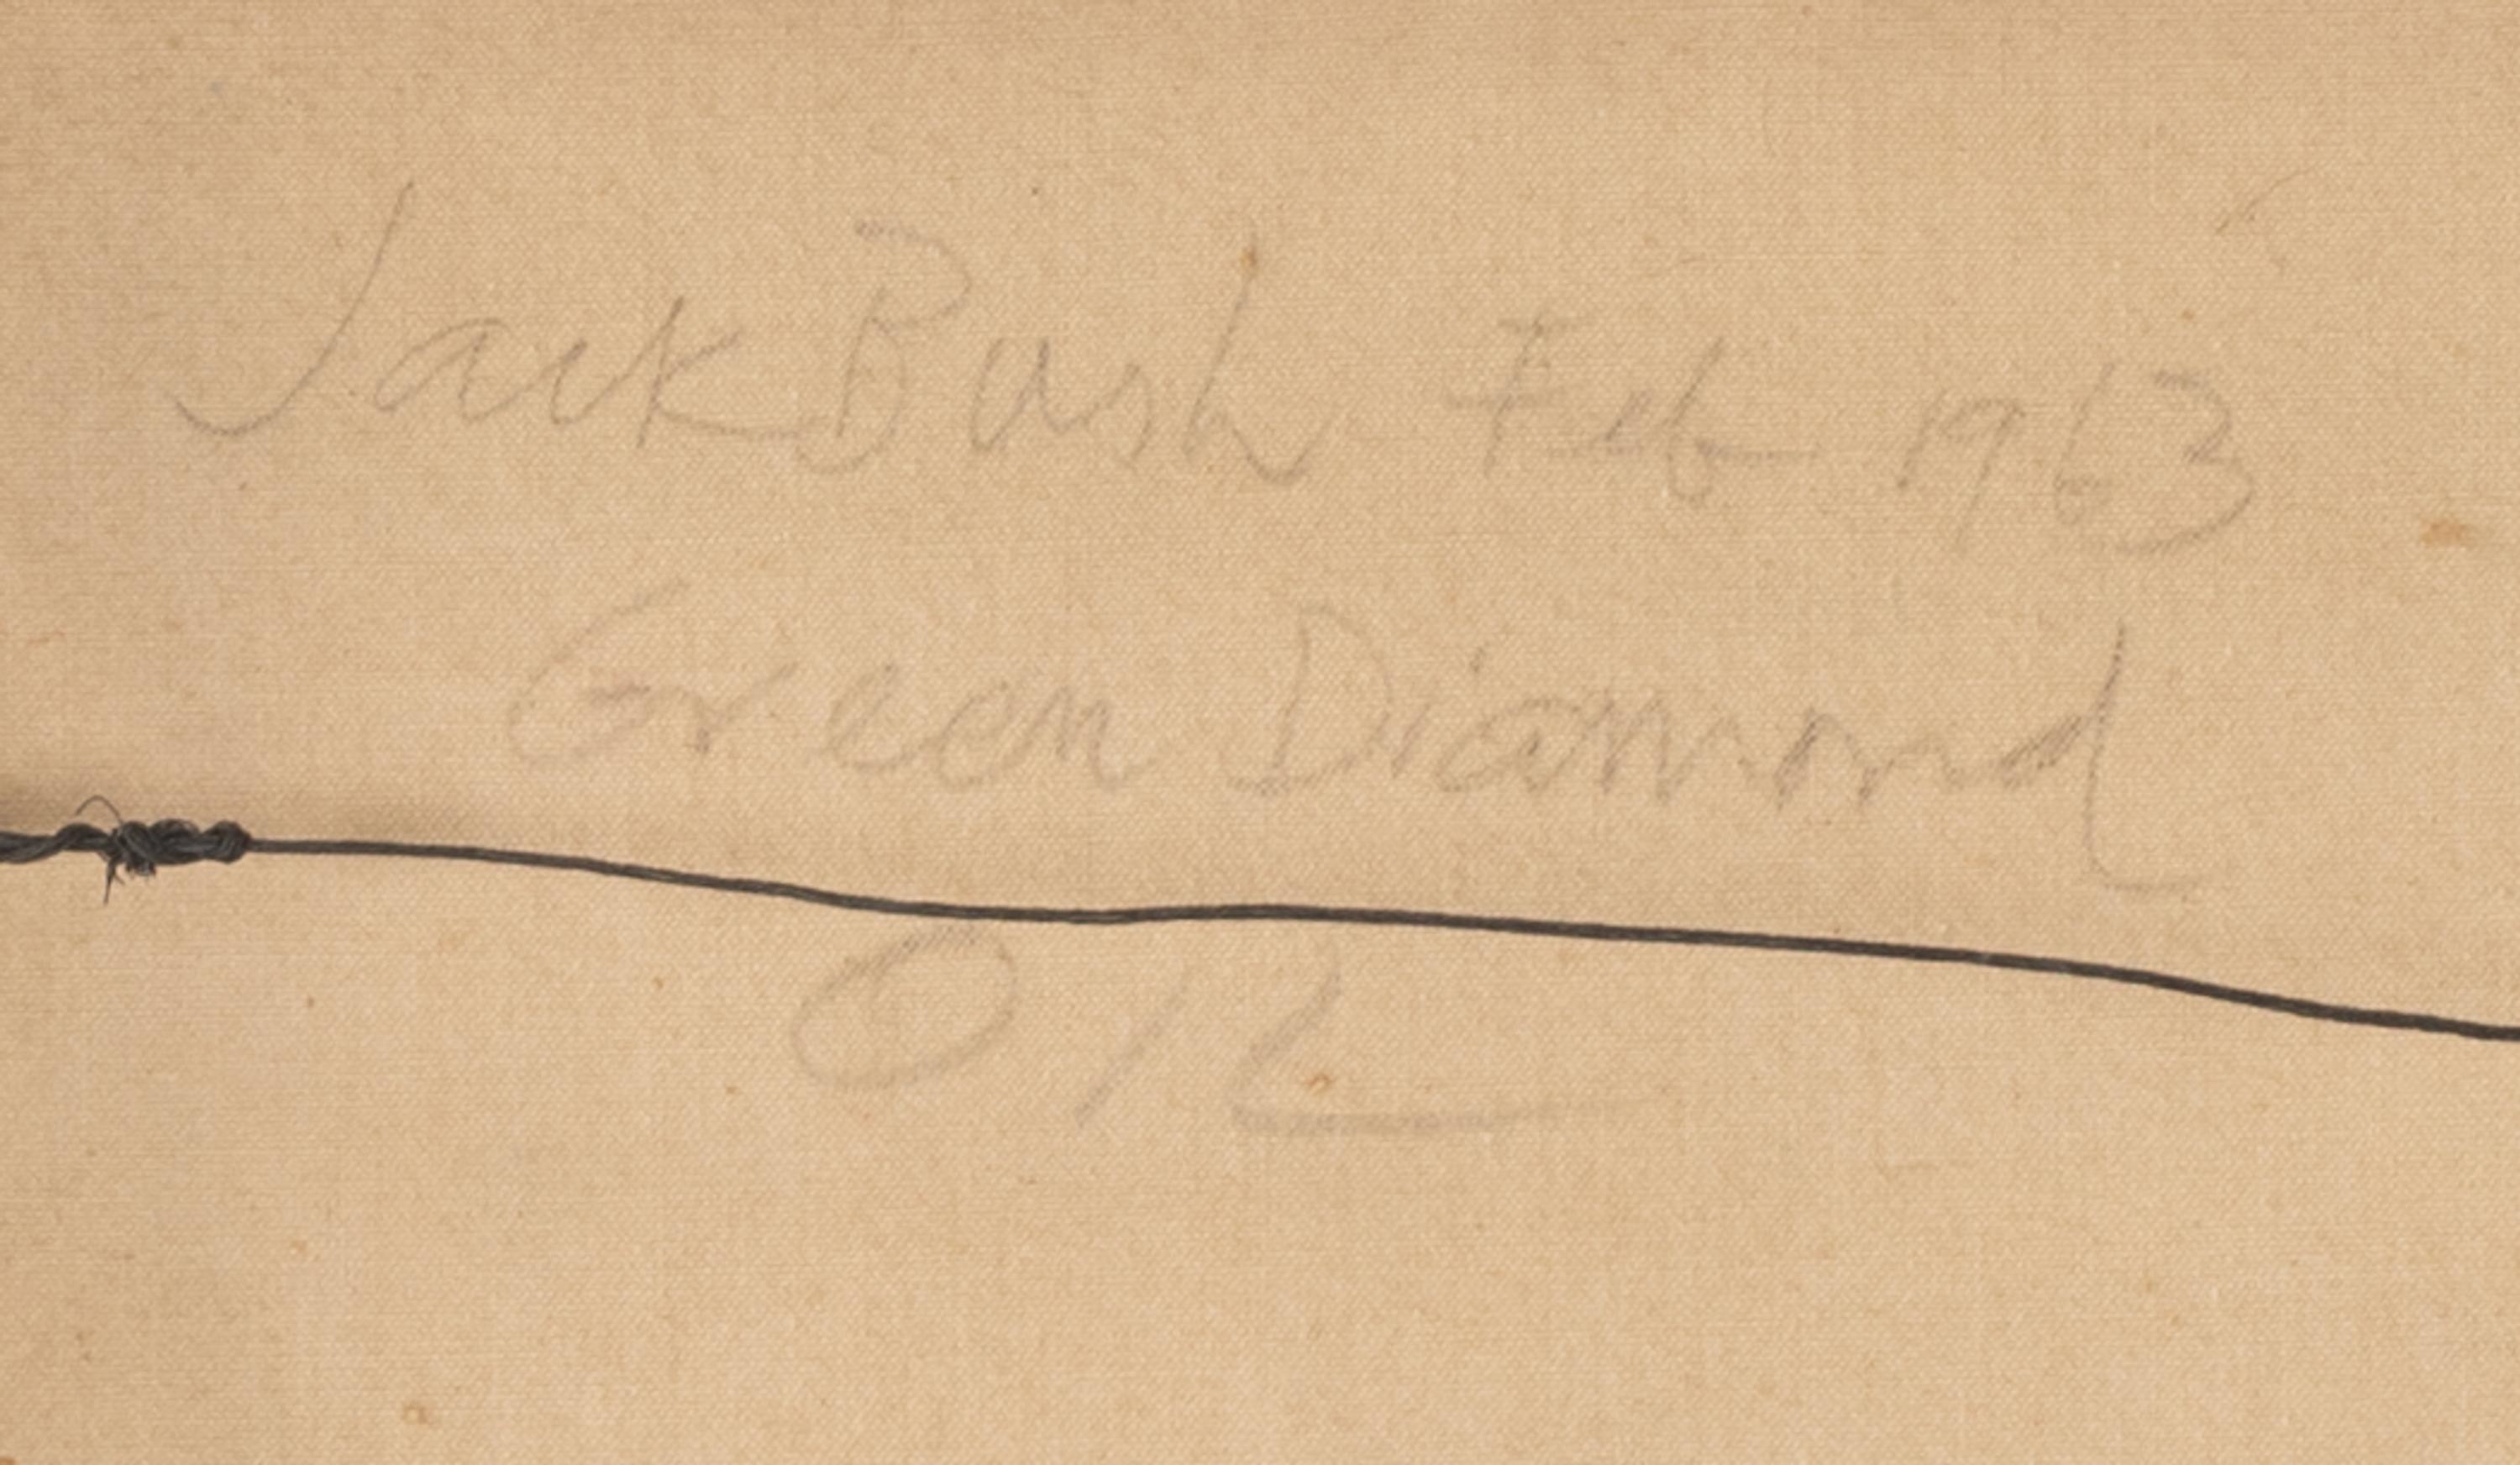 Jack Bush Feb 1963
Green Diamond